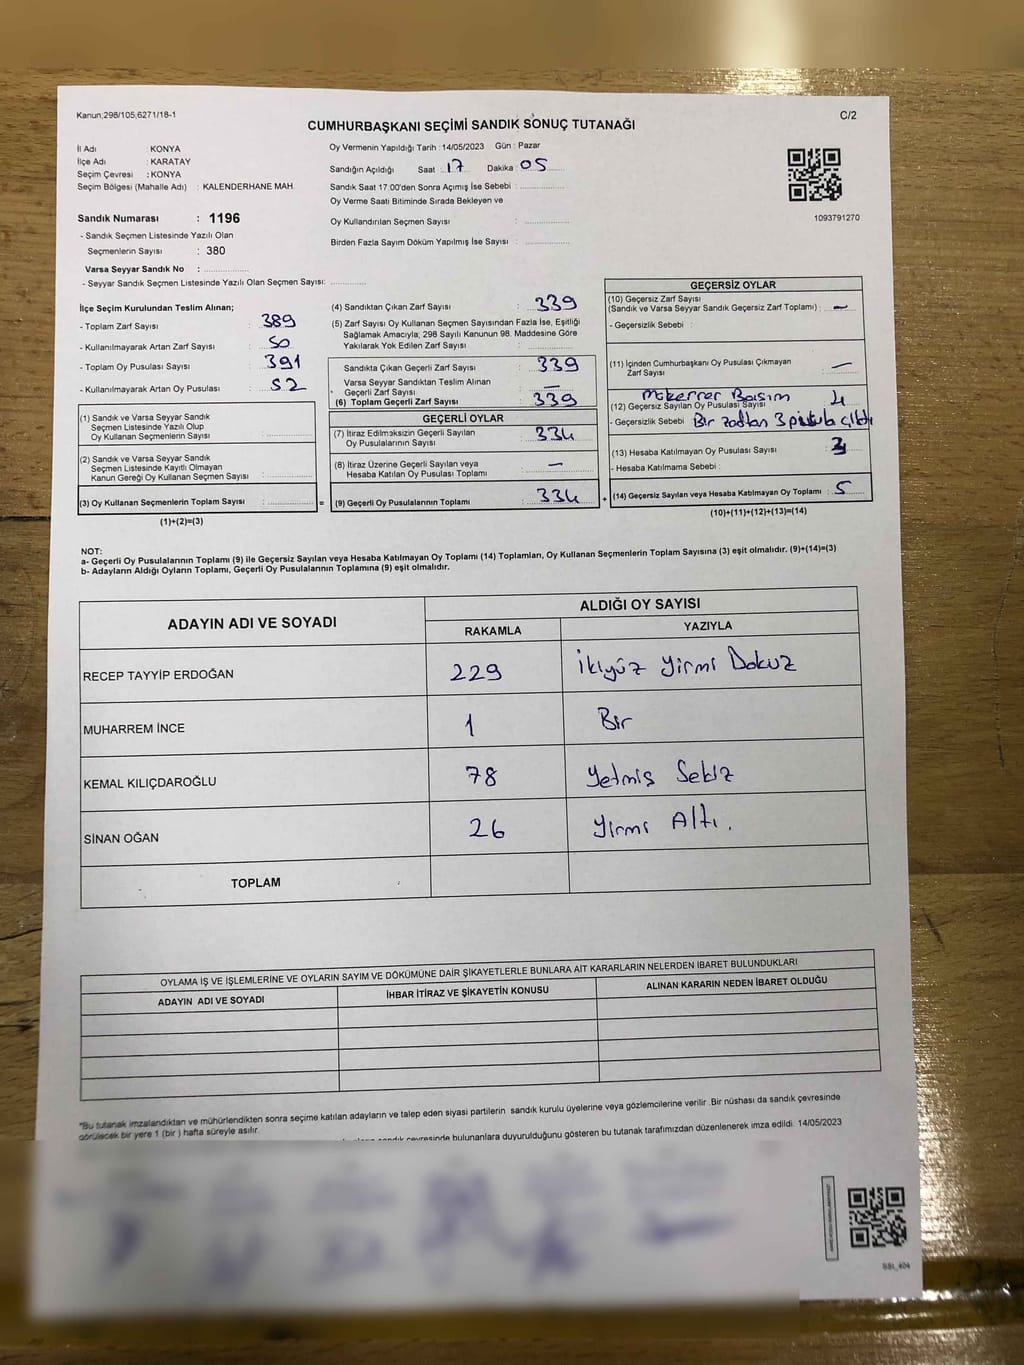 Kanun;298/105;6271/18-1
C/2
CUMHURBAŞKANI SEÇİMİ SANDIK SONUÇ TUTANAĞI
İl Adı : KONYA
İlçe Adı : KARATAY
Seçim Çevresi : KONYA
Seçim Bölgesi (Mahalle Adı) : KALENDERHANE MAH.
Sandık Numarası : 1196
- Sandık Seçmen Listesinde Yazılı Olan
Seçmenlerin Sayısı : 380
Varsa Seyyar Sandık No :
- Seyyar Sandık Seçmen Listesinde Yazılı Olan Seçmen Sayısı:
Oy Vermenin Yapıldığı Tarih :14/05/2023 Gün : Pazar
Sandığın Açıldığı Saat : 17 Dakika : 05
Sandık Saat 17:00'den Sonra Açımış İse Sebebi :
Oy Verme Saati Bitiminde Sırada Bekleyen ve
Oy Kullandırılan Seçmen Sayısı :
Birden Fazla Sayım Döküm Yapılmış İse Sayısı :
1093791270
İlçe Seçim Kurulundan Teslim Alınan;
- Toplam Zarf Sayısı : 389
- Kullanılmayarak Artan Zarf Sayısı : 50
- Toplam Oy Pusulası Sayısı : 391
- Kullanılmayarak Artan Oy Pusulası : 52
(1) Sandık ve Varsa Seyyar Sandık
Seçmen Listesinde Yazılı Olup
Oy Kullanan Seçmenlerin Sayısı :
(2) Sandık ve Varsa Seyyar Sandık
Seçmen Listesinde Kayıtlı Olmayan
Kanun Gereği Oy Kullanan Seçmen Sayısı :
(3) Oy Kullanan Seçmenlerin Toplam Sayısı : =
(1)+(2)=(3)
(4) Sandıktan Çıkan Zarf Sayısı : 339
(5) Zarf Sayısı Oy Kullanan Seçmen Sayısından Fazla İse, Eşitliği
Sağlamak Amacıyla; 298 Sayılı Kanunun 98. Maddesine Göre
Yakılarak Yok Edilen Zarf Sayısı :
Sandıkta Çıkan Geçerli Zarf Sayısı : 339
Varsa Seyyar Sandıktan Teslim Alınan
Geçerli Zarf Sayısı : —
(6) Toplam Geçerli Zarf Sayısı : 339
GEÇERLİ OYLAR
(7) İtiraz Edilmeksizin Geçerli Sayılan
Oy Pusulalarının Sayısı : 334
(8) İtiraz Üzerine Geçerli Sayılan veya
Hesaba Katılan Oy Pusulası Toplamı : —
(9) Geçerli Oy Pusulalarının Toplamı : 334 +
GEÇERSİZ OYLAR
(10) Geçersiz Zarf Sayısı
(Sandık ve Varsa Seyyar Sandık Geçersiz Zarf Toplamı) : —
- Geçersizlik Sebebi :
(11) İçinden Cumhurbaşkanı Oy Pusulası Çıkmayan
Zarf Sayısı : —
Mükerrer Basım 4
(12) Geçersiz Sayılan Oy Pusulası Sayısı
- Geçersizlik Sebebi : Bir zarftan 3 pusula çıktı
(13) Hesaba Katılmayan Oy Pusulası Sayısı :
- Hesaba Katılmama Sebebi :
(14) Geçersiz Sayılan veya Hesaba Katılmayan Oy Toplamı : 5
(10)+(11)+(12)+(13)=(14)
NOT:
a- Geçerli Oy Pusulalarının Toplamı (9) ile Geçersiz Sayılan veya Hesaba Katılmayan Oy Toplamı (14) Toplamları, Oy Kullanan Seçmenlerin Toplam Sayısına (3) eşit olmalıdır. (9)+(14)=(3)
b- Adayların Aldığı Oyların Toplamı, Geçerli Oy Pusulalarının Toplamına (9) eşit olmalıdır.
ADAYIN ADI VE SOYADI ALDIĞI OY SAYISI
RAKAMLA YAZIYLA
RECEP TAYYİP ERDOĞAN 229 İkiyüz Yirmi Dokuz
MUHARREM İNCE 1 Bir
KEMAL KILIÇDAROĞLU 78 Yetmiş Sekiz
SİNAN OĞAN 26 Yirmi Altı.
TOPLAM
OYLAMA İŞ VE İŞLEMLERİNE VE OYLARIN SAYIM VE DÖKÜMÜNE DAİR ŞİKAYETLERLE BUNLARA AİT KARARLARIN NELERDEN İBARET BULUNDUKLARI
ADAYIN ADI VE SOYADI İHBAR İTİRAZ VE ŞİKAYETİN KONUSU ALINAN KARARIN NEDEN İBARET OLDUĞU
*Bu tutanak imzalandıktan ve mühürlendikten sonra seçime katılan adayların ve talep eden siyasi partilerin sandık kurulu üyelerine veya gözlemcilerine verilir .Bir nüshası da sandık çevresinde
görülecek bir yere 1 (bir ) hafta süreyle asılır.
sandık çevresinde bulunanlara duyurulduğunu gösteren bu tutanak tarafımızdan düzenlenerek imza edildi. 14/05/2023